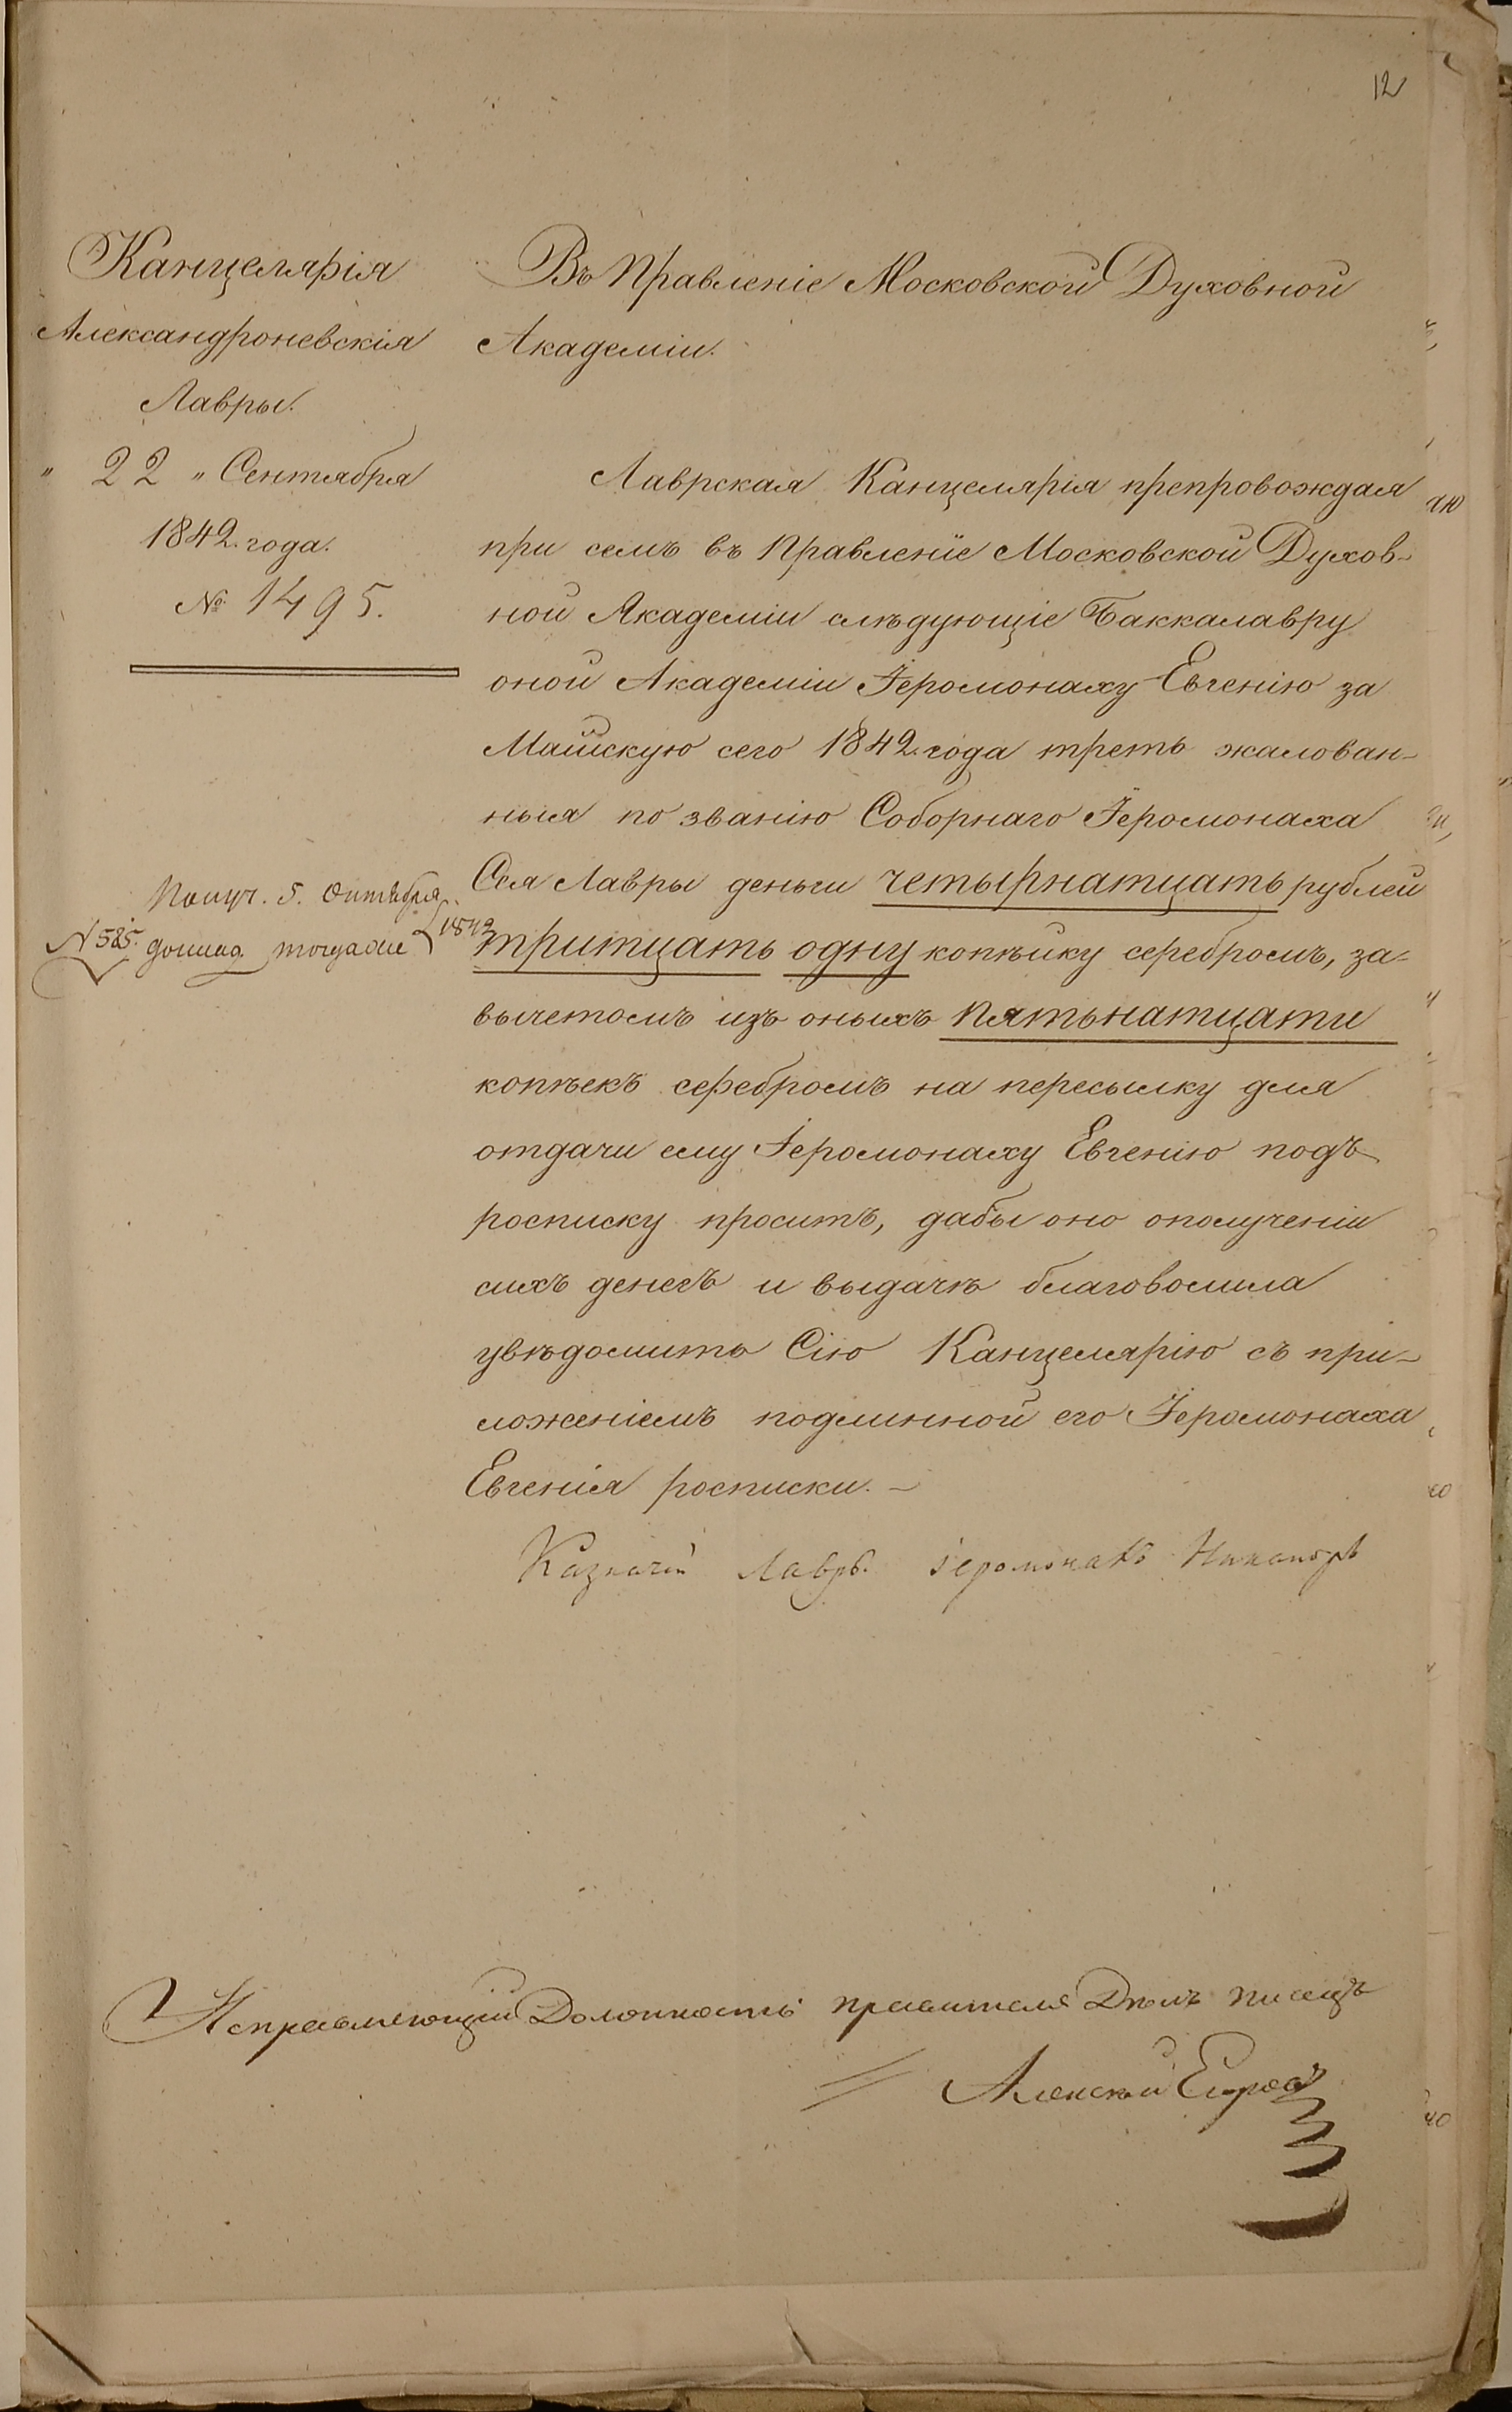 12
Канцелярія
Александроневскія
Лавры.
" 22 " Сентября
1842. года.
№ 1495.
Въ Правленіе Московской Духовной
Академіи.
Лаврская Канцелярія препровождая
при семъ въ Правленіе Московской Духов-
ной Академіи слѣдующіе Баккалавру
оной Академіи Іеромонаху Евгенію за
Майскую сего 1842. года треть жалован-
ныя по званію Соборнаго Іеромонаха
Сея Лавры деньги четырнатцать рублей
тритцать одну копѣйку серебромъ, за
вычетомъ изъ оныхъ пятьнатцати
копѣекъ серебромъ на пересылку для
отдачи ему Іеромонаху Евгенію подъ
росписку проситъ, дабы оно ополученіи
сихъ денегъ и выдачѣ благоволила
увѣдомить Сію Канцелярію съ при-
ложеніемъ подлинной его Іеромонаха
Евгенія росписки. -
Получ. 5. Октября 1842
№ 585. доклад. тогдаже
Казначей Лавры. іеромонахъ Никаноръ
Исправляющій Должность правителя Дѣлъ писецъ
Алексѣй Егоровъ